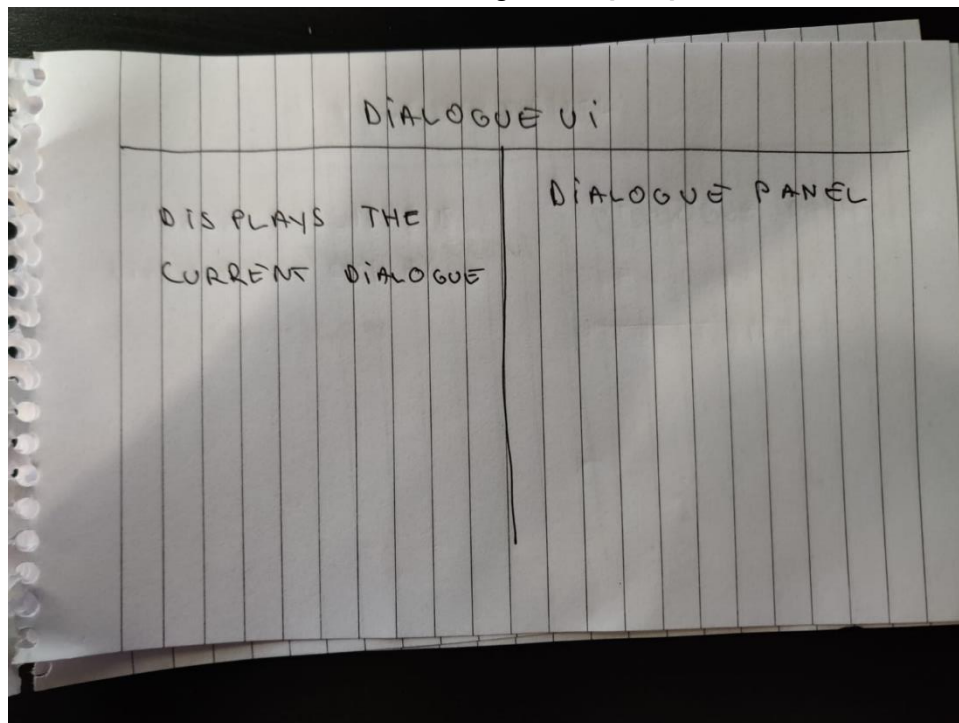 DIALOGUE UI
DISPLAYS THE
CURRENT DIALOGUE
DIALOGUE PANEL